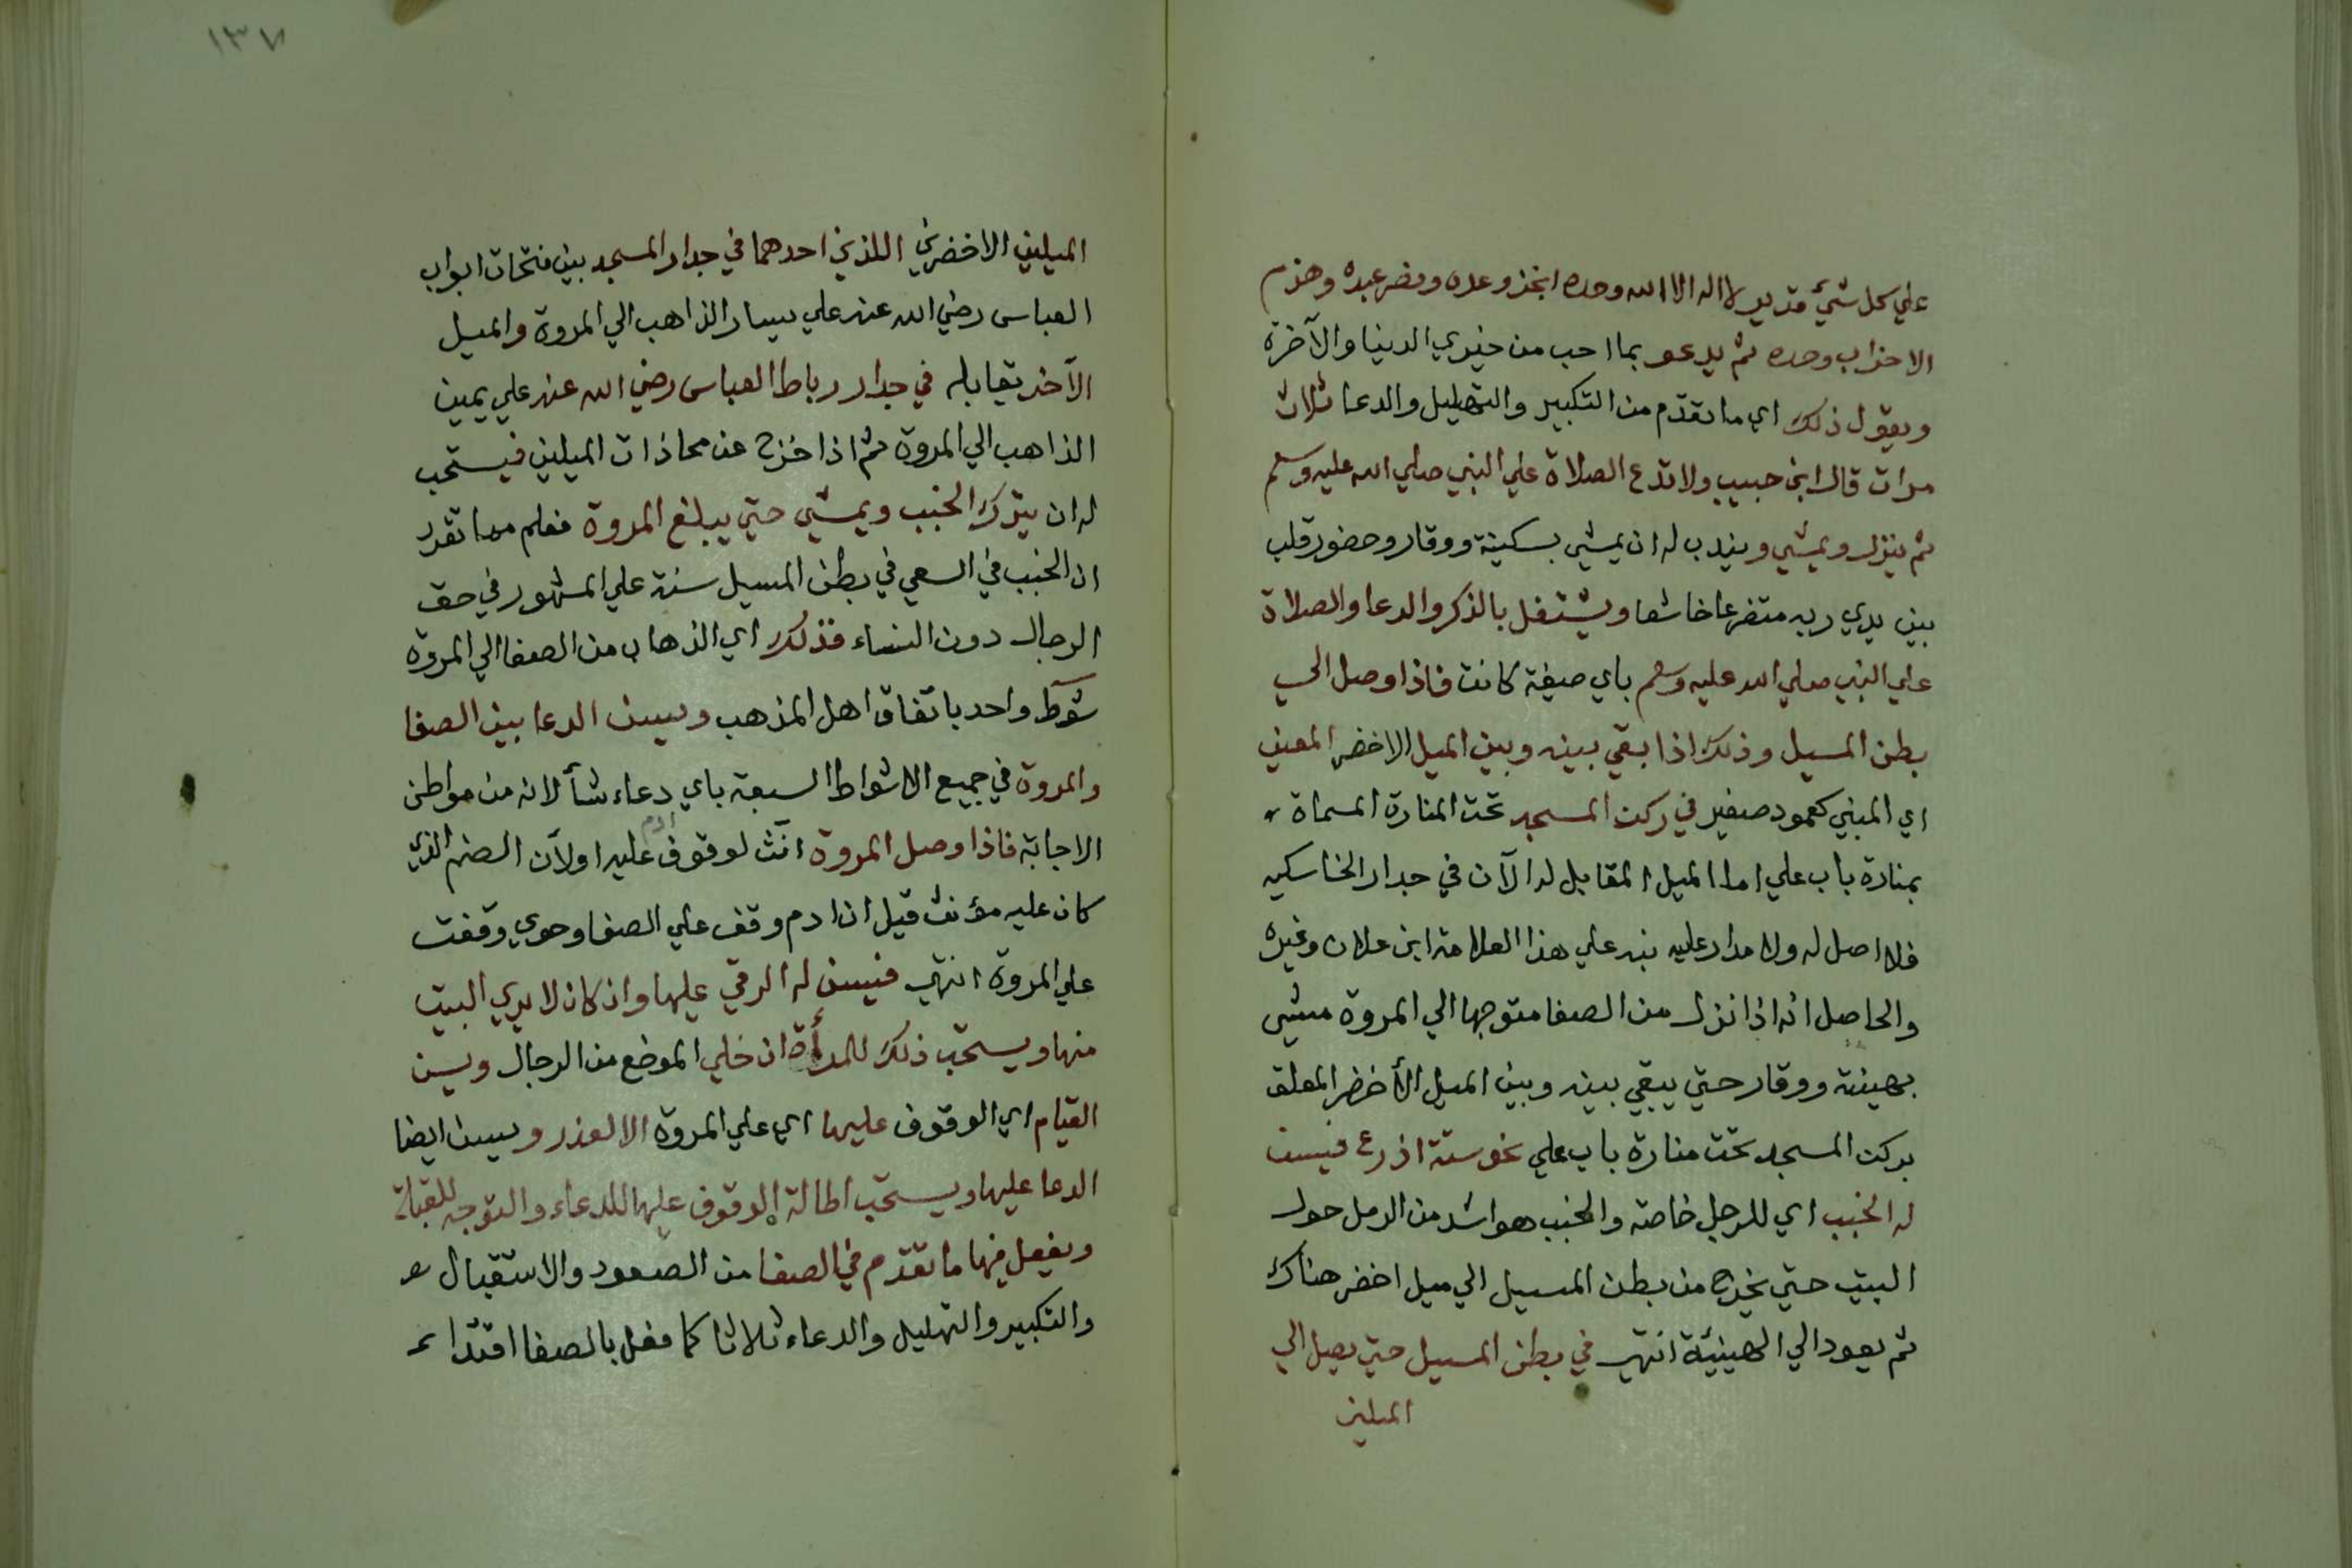 علي كل شئ قدير لا اله الا الله وحده انجز وعده ونصر عبده وهزم
الاحزاب وحده ثم يدعو بما احب من خيري الدنيا والآخرة
ويقول ذلك اي ما تقدّم من التكبير والتهليل والدعا ثلاث
مرات قال ابن حبيب ولا تدع الصلاة علي النبي صلي الله عليه وسلم
ثم ينزل ويمشي ويندب له ان يمشي بسكينة ووقار وحضور قلب
بين يدي ربه متضرعا خاشعا ويشتغل بالذكر والدعا والصلاة
علي النبي صلي الله عليه وسلم باي صيغة كانت فاذا وصل الي
بطن المسيل وذلك اذا بقي بينه وبين الميل الاخضر المعين
اي المبني كعمود صغير في ركن المسجد تحت المنارة المسماة
بمنارة باب علي اما الميل المقابل له الآن في جدار الخاسكيه
فلا اصل له ولا مدار عليه نبه علي هذا العلامة ابن علان وغيره
والحاصل انه اذا نزل من الصفا متوجها الي المروة مشي
بهينة ووقار حتي يبقي بينه وبين الميل الأخضر المعلق
بركن المسجد تحت منارة باب علي نحو ستة اذرع فيسن
له الخبب اي للرجل خاصة والخبب هو اشد من الرمل حول
البيت حتي يخرج من بطن المسيل الي ميل اخضر هناك
ثم يعود الي الهينئة انتهي في بطن المسيل حتي يصل الي
الميلين
١٣٧
الميلين الاخضرين اللذين احدهما في جدار المسجد بين فتحات ابواب
العباس رضي الله عنه علي يسار الذاهب الي المروة والميل
الآخر يقابله في جدار رباط العباس رضي الله عنه علي يمين
الذاهب الي المروة ثم اذا خرج عن محاذات الميلين فيستحب
له ان يترك الخبب ويمشي حتي يبلغ المروة فعلم مما تقدر
ان الخبب في السعي في بطن المسيل سنة علي المشهور في حق
الرجال دون النساء فذلك اي الذهاب من الصفا الي المروة
شوط واحد باتفاق اهل المذهب ويسن الدعا بين الصفا
والمروة في جميع الاشواط السبعة باي دعاء شأ لانه من مواطن
الاجابة فاذا وصل المروة انّث لوقوف ادم عليه اولآن الصنم الذي
كان عليه مؤنث قيل ان ادم وقف علي الصفا وحوي وقفت
علي المروة انتهي فيسن له الرقي عليها وان كان لا يري البيت
منها ويستحب ذلك للمرأة ان خلي الموضع من الرجال ويسن
القيام اي الوقوف عليها اي علي المروة الا لعذر ويسن ايضا
الدعا عليها ويستحب اطالة الوقوف عليها للدعاء والتوجه للقبلة
ويفعل فيها ما تقدّم في الصفا من الصعود والاستقبال
والتكبير والتهليل والدعاء ثلاثا كما فعل بالصفا اقتدا